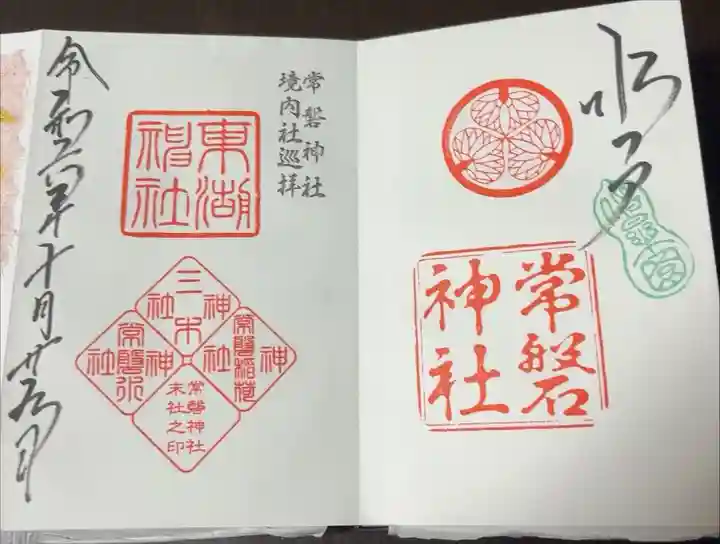 水戸
常磐
神社
常磐神社
境内社巡拝
東湖
神社
三木
神社
常磐稲荷
神社
常磐水
神社
常磐神社
末社之印
令和六年十月廿